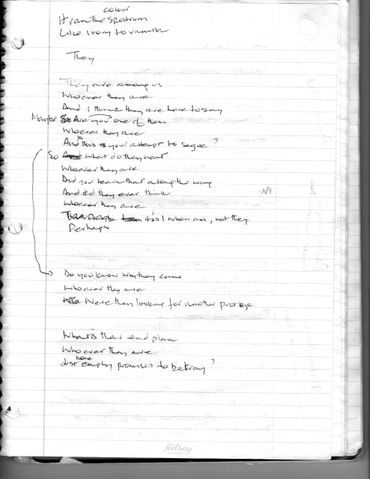 colour
It ran the spectrum
Like ivory to vanilla
They
They are among us
Whoever they are
And I think they are here to stay
Are you one of them
Whoever they are
And is this your attempt to segue?
So what do they want
Whoever they are
Did you learn that along the way
And did they ever think
Whoever they are
it's I whom are, not they
Perhaps
Do you know why they came
Whoever they are
Were they looking for another
What is their end plan
Whoever they are
more empty promises to betray?
Hilroy